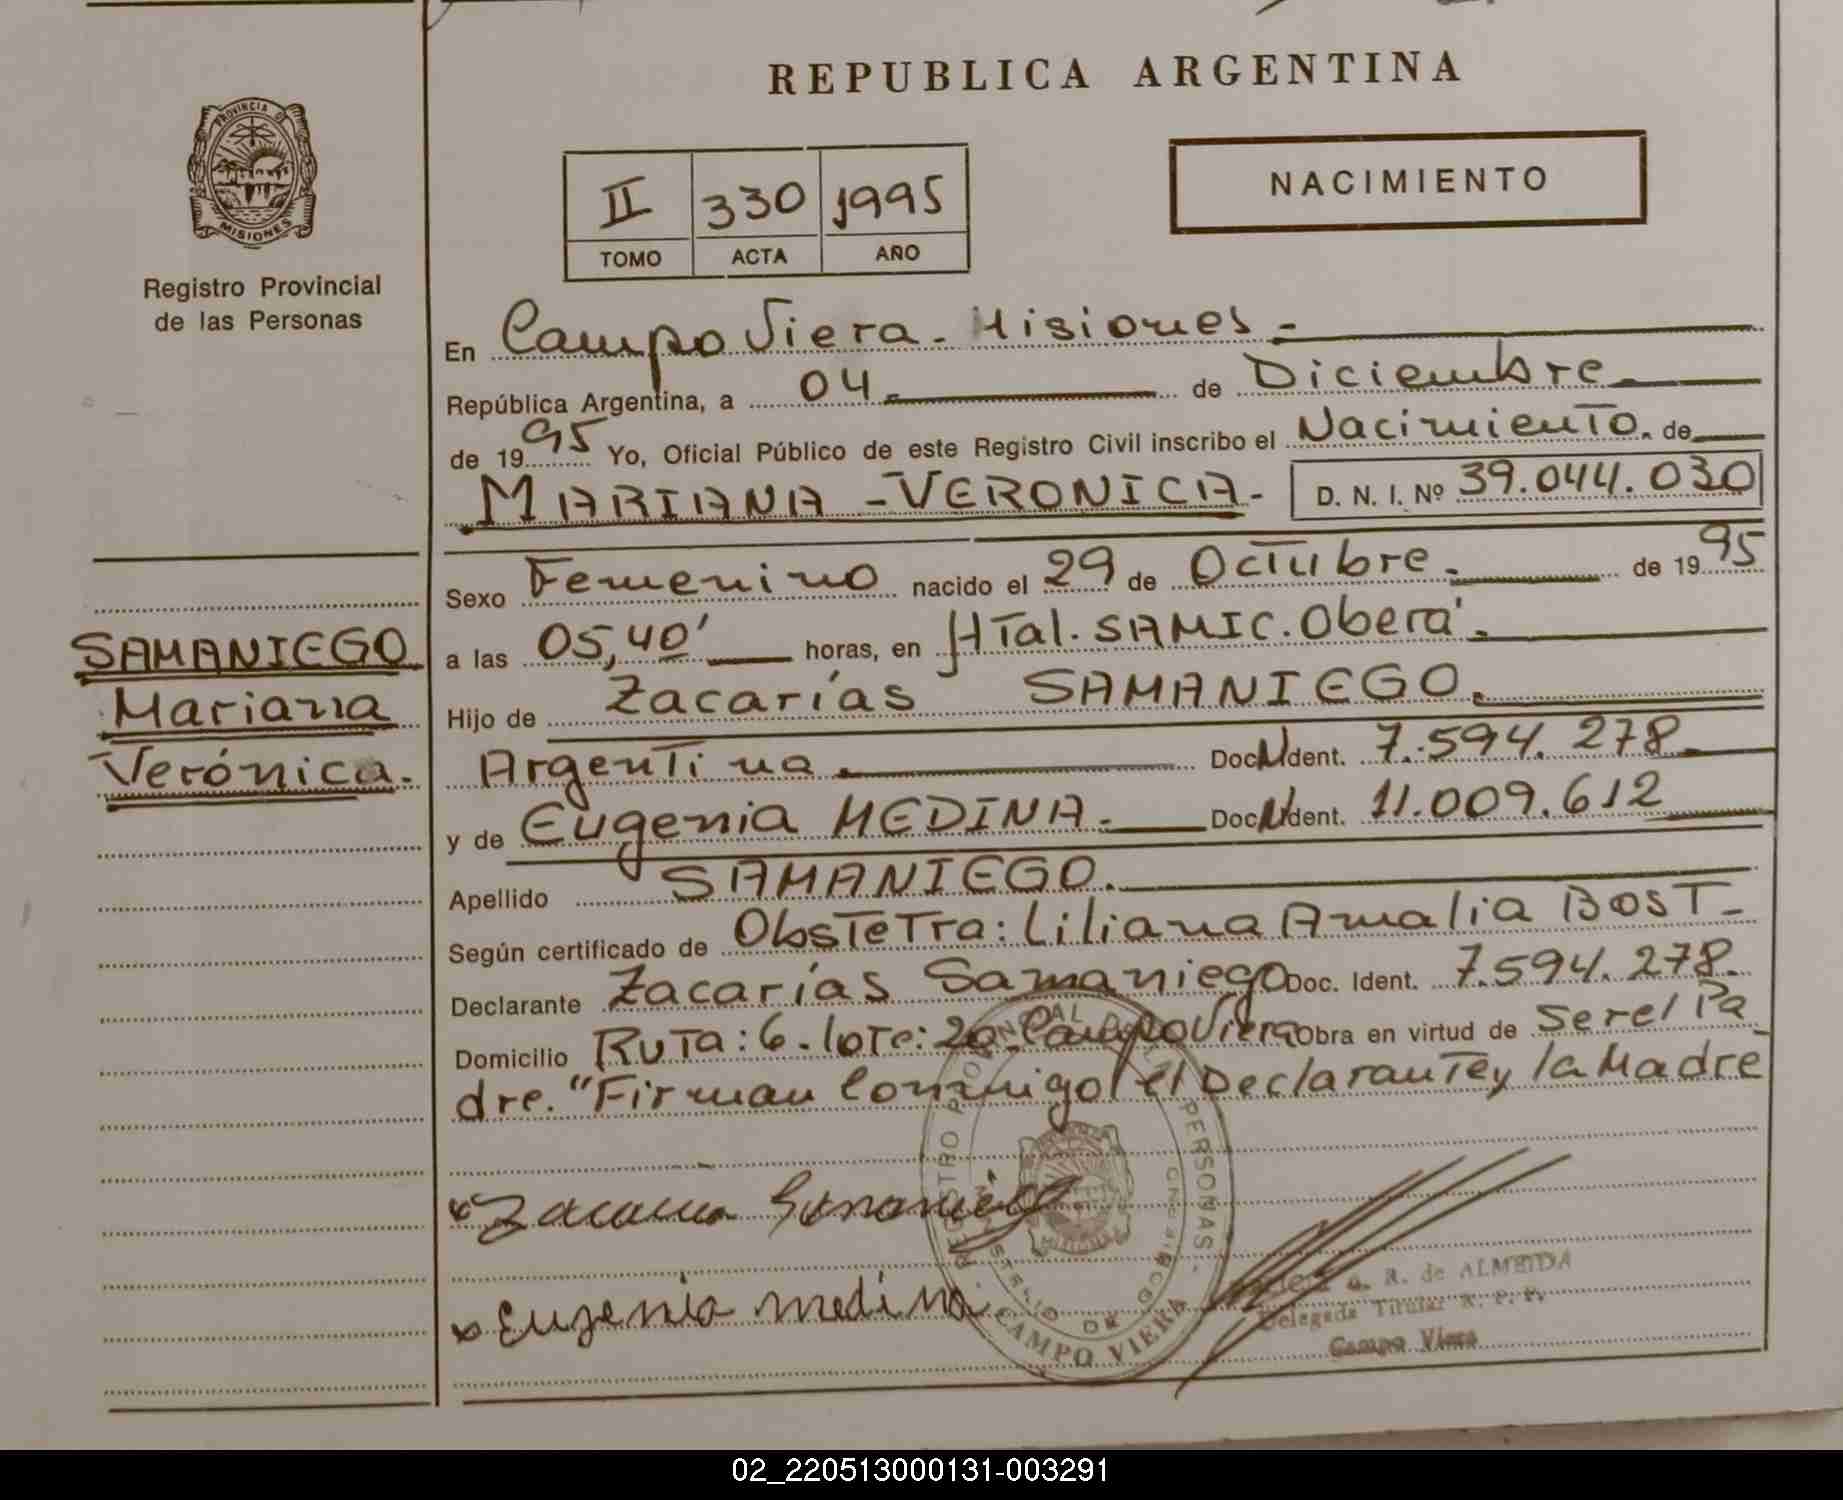 REPUBLICA ARGENTINA
PROVINCIA DE
MISIONES
Registro Provincial
de las Personas
II 330 1995
TOMO ACTA AÑO
NACIMIENTO
En Campo Viera - Misiones -
República Argentina, a 04 de Diciembre
de 1995 Yo, Oficial Público de este Registro Civil inscribo el Nacimiento. de
MARIANA - VERONICA - D. N. I. Nº 39.044.030
Sexo Femenino nacido el 29 de Octubre. de 1995
a las 05,40' horas, en HTal. SAMIC. Oberá.
Hijo de Zacarías SAMANIEGO.
Argentina. Doc. Ident. 7.594.278
y de Eugenia MEDINA. Doc. Ident. 11.009.612
Apellido SAMANIEGO.
Según certificado de ObsTeTra: Liliana Amalia BOST -
Declarante Zacarías Samaniego Doc. Ident. 7.594.278.
Domicilio RUTA: 6. loTe: 20. Campo Viera Obra en virtud de ser el Pa
dre. "Firman Conmigo el Declarante y la Madre
SAMANIEGO
Mariana
Verónica.
Zacarias Samaniego
Eugenia medina
REGISTRO PROVINCIAL DE LAS PERSONAS
MINISTERIO DE GOBIERNO
CAMPO VIERA
MISIONES
G. R. de ALMEIDA
Delegada Titular R. P. P.
Campo Viera
02_220513000131-003291